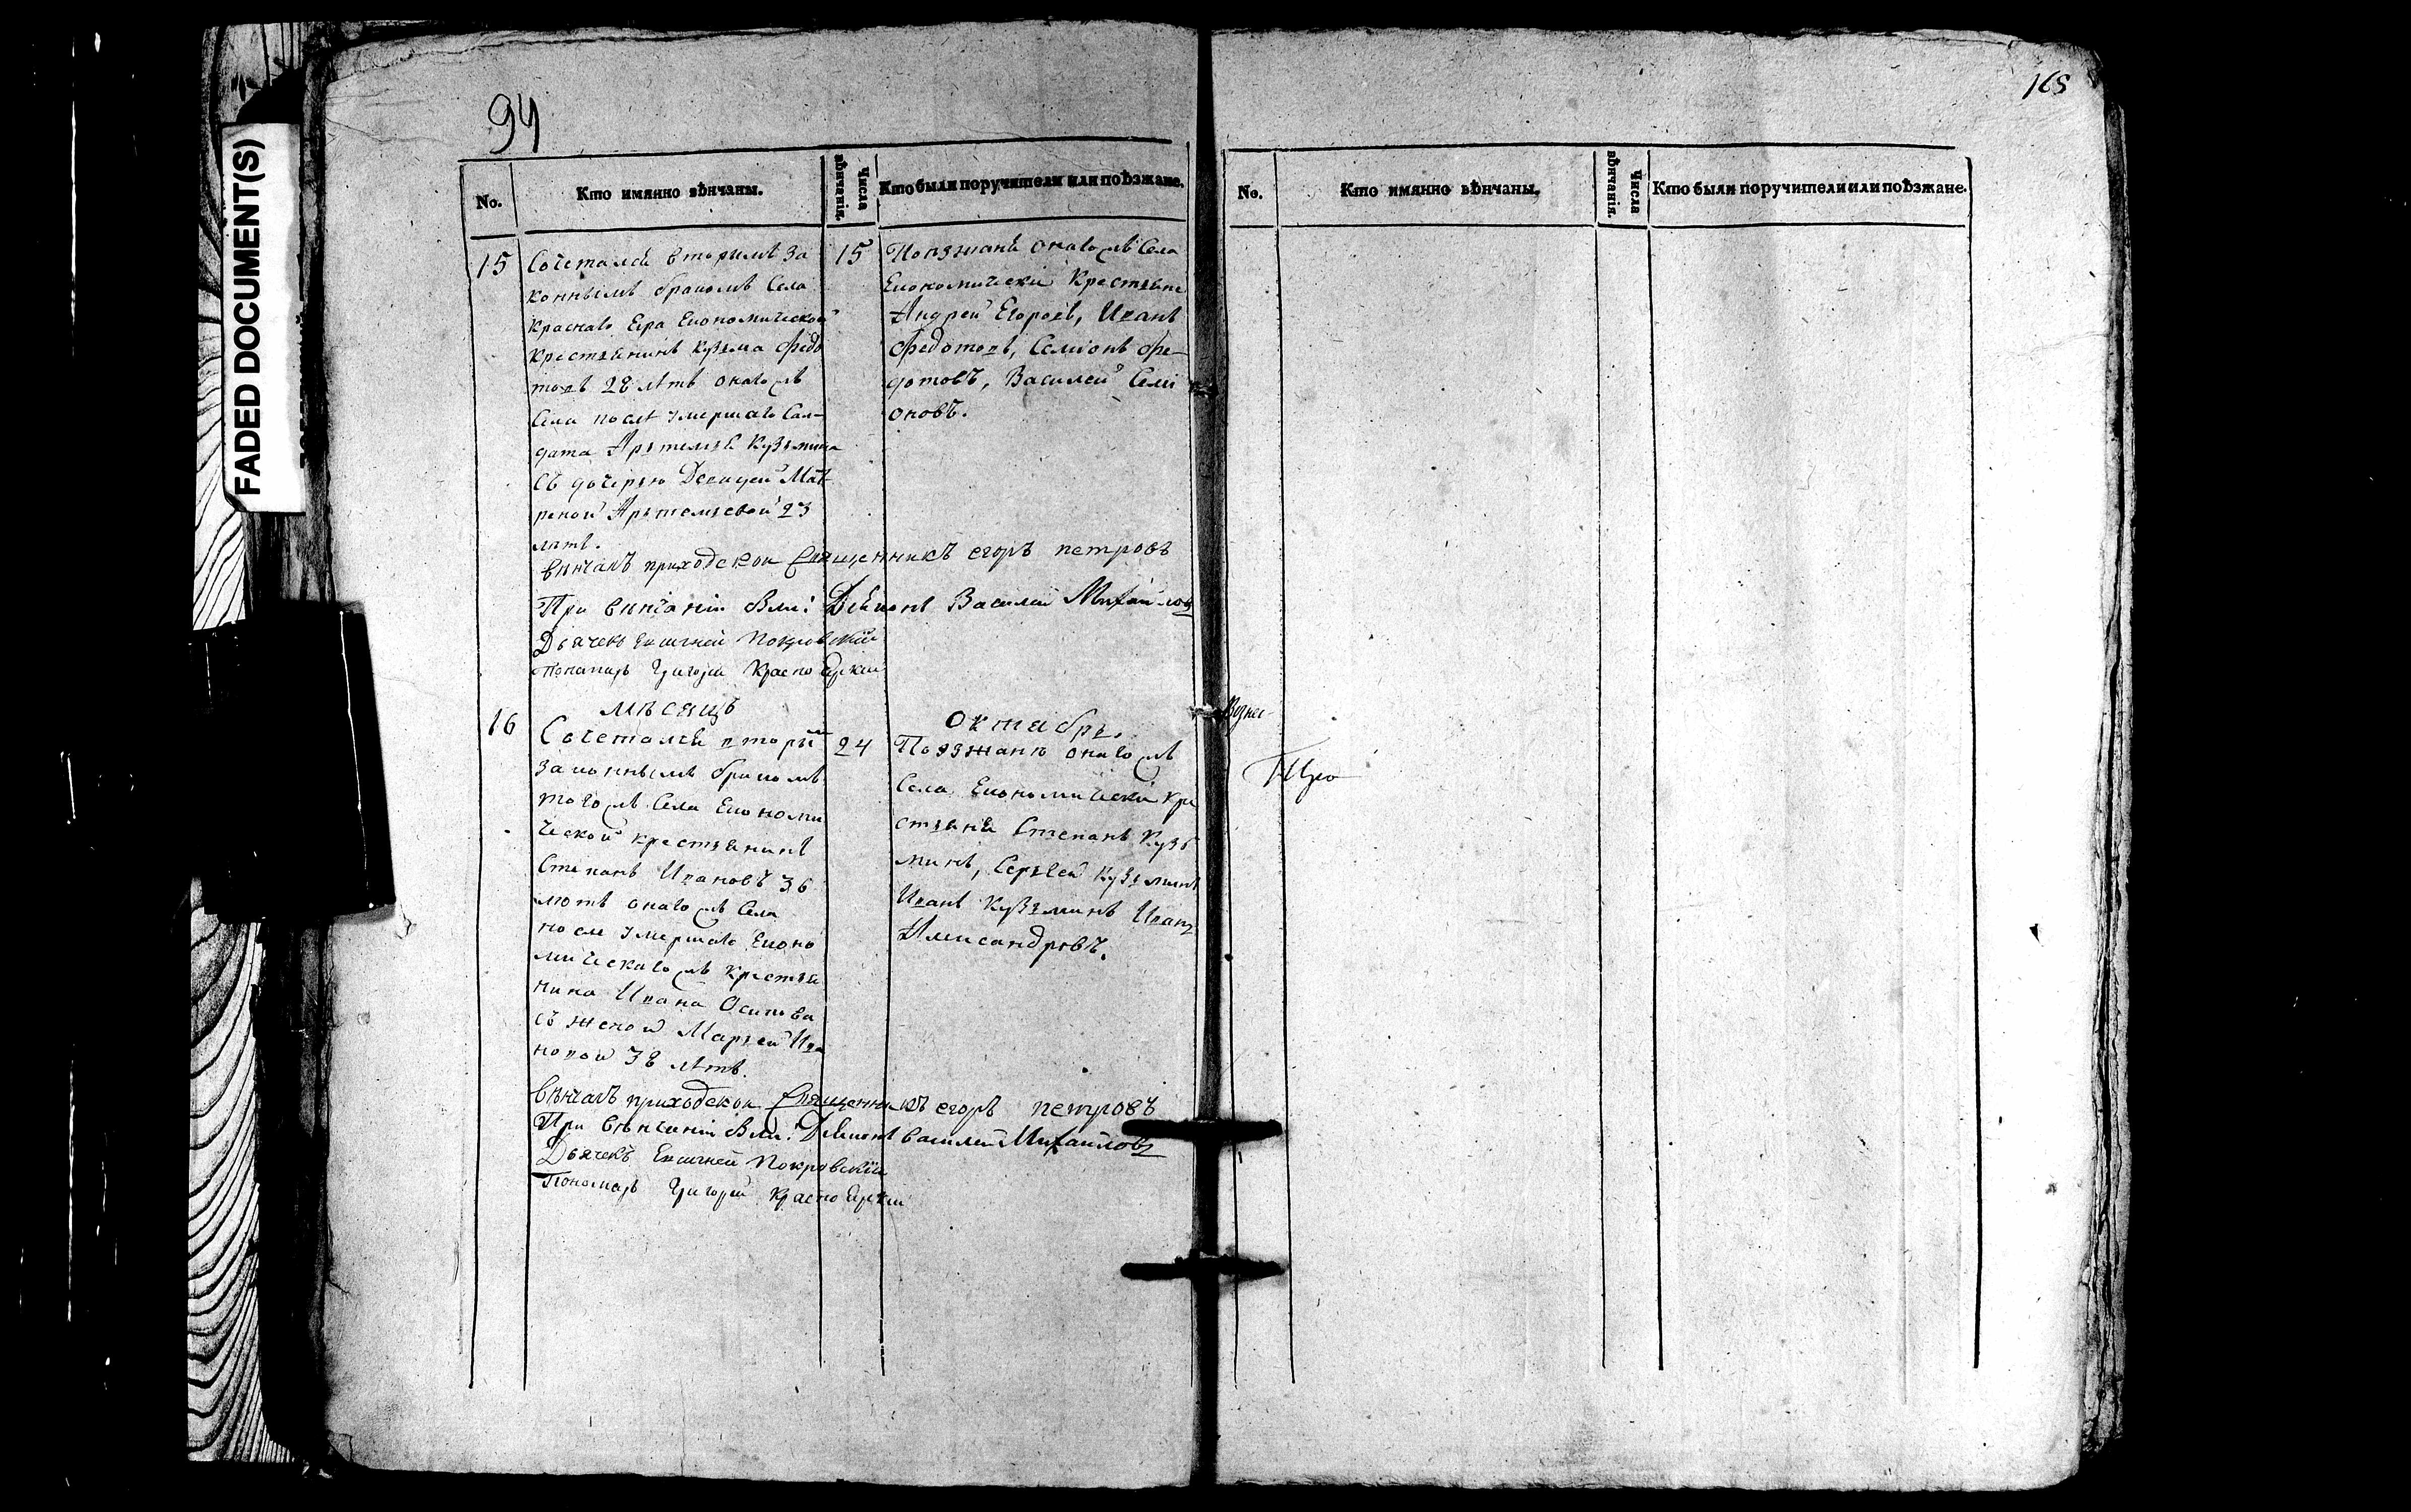 FADED DOCUMENT(S)
94
No.
Кто имянно вѣнчаны.
Числа вѣнчанія.
Кто были поручители или поѣзжане.
15
Сочетался вторымъ за
коннымъ бракомъ Села
Краснаго Яра Економической
крестьянинъ Кузьма Федо
товъ 28 лѣтъ онаго жъ
Села послѣ умершаго Сал-
дата Артемья Кузьмина
съ дочерью Девицей Мат
реной Артемьевой 23
лѣтъ.
15
Поезжанѣ онаго жъ Села
Економически Крестьяне
Андрей Егоровъ, Иванъ
Федотовъ, Семіонъ Фе-
дотовъ, Василей Семі
оновъ.
вѣнчалъ приходской Священникъ егоръ петровъ
При венчаніи были: Дьяконъ Василей Михайловъ
Дьячекъ Евсигней Покровскій
Пономарь Григорей Красно Ярскій
мѣсяцъ
Октябрь.
16
Сочетался вторым
законнымъ бракомъ
того жъ Села Економи
ческой крестьянинъ
Степанъ Ивановъ 36
лѣтъ онаго жъ Села
после умершаго Еконо
мическаго жъ крестья
нина Ивана Осипова
съ женой Марьей Ива
новой 38 лѣтъ.
24
Поезжанѣ онаго жъ
Села Економически кре
стьяня Степанъ Кузь
минъ, Сергей Кузьминъ
Иванъ Кузьминъ Иванъ
Александровъ.
вѣнчалъ приходской Священникъ егоръ петровъ
При венчаніи были: Дьяконъ Василей Михайловъ
Дьячекъ Евсигней Покровскій
Пономарь Григорей Красно Ярскій
165
No.
Кто имянно вѣнчаны.
Числа вѣнчанія.
Кто были поручители или поѣзжане.